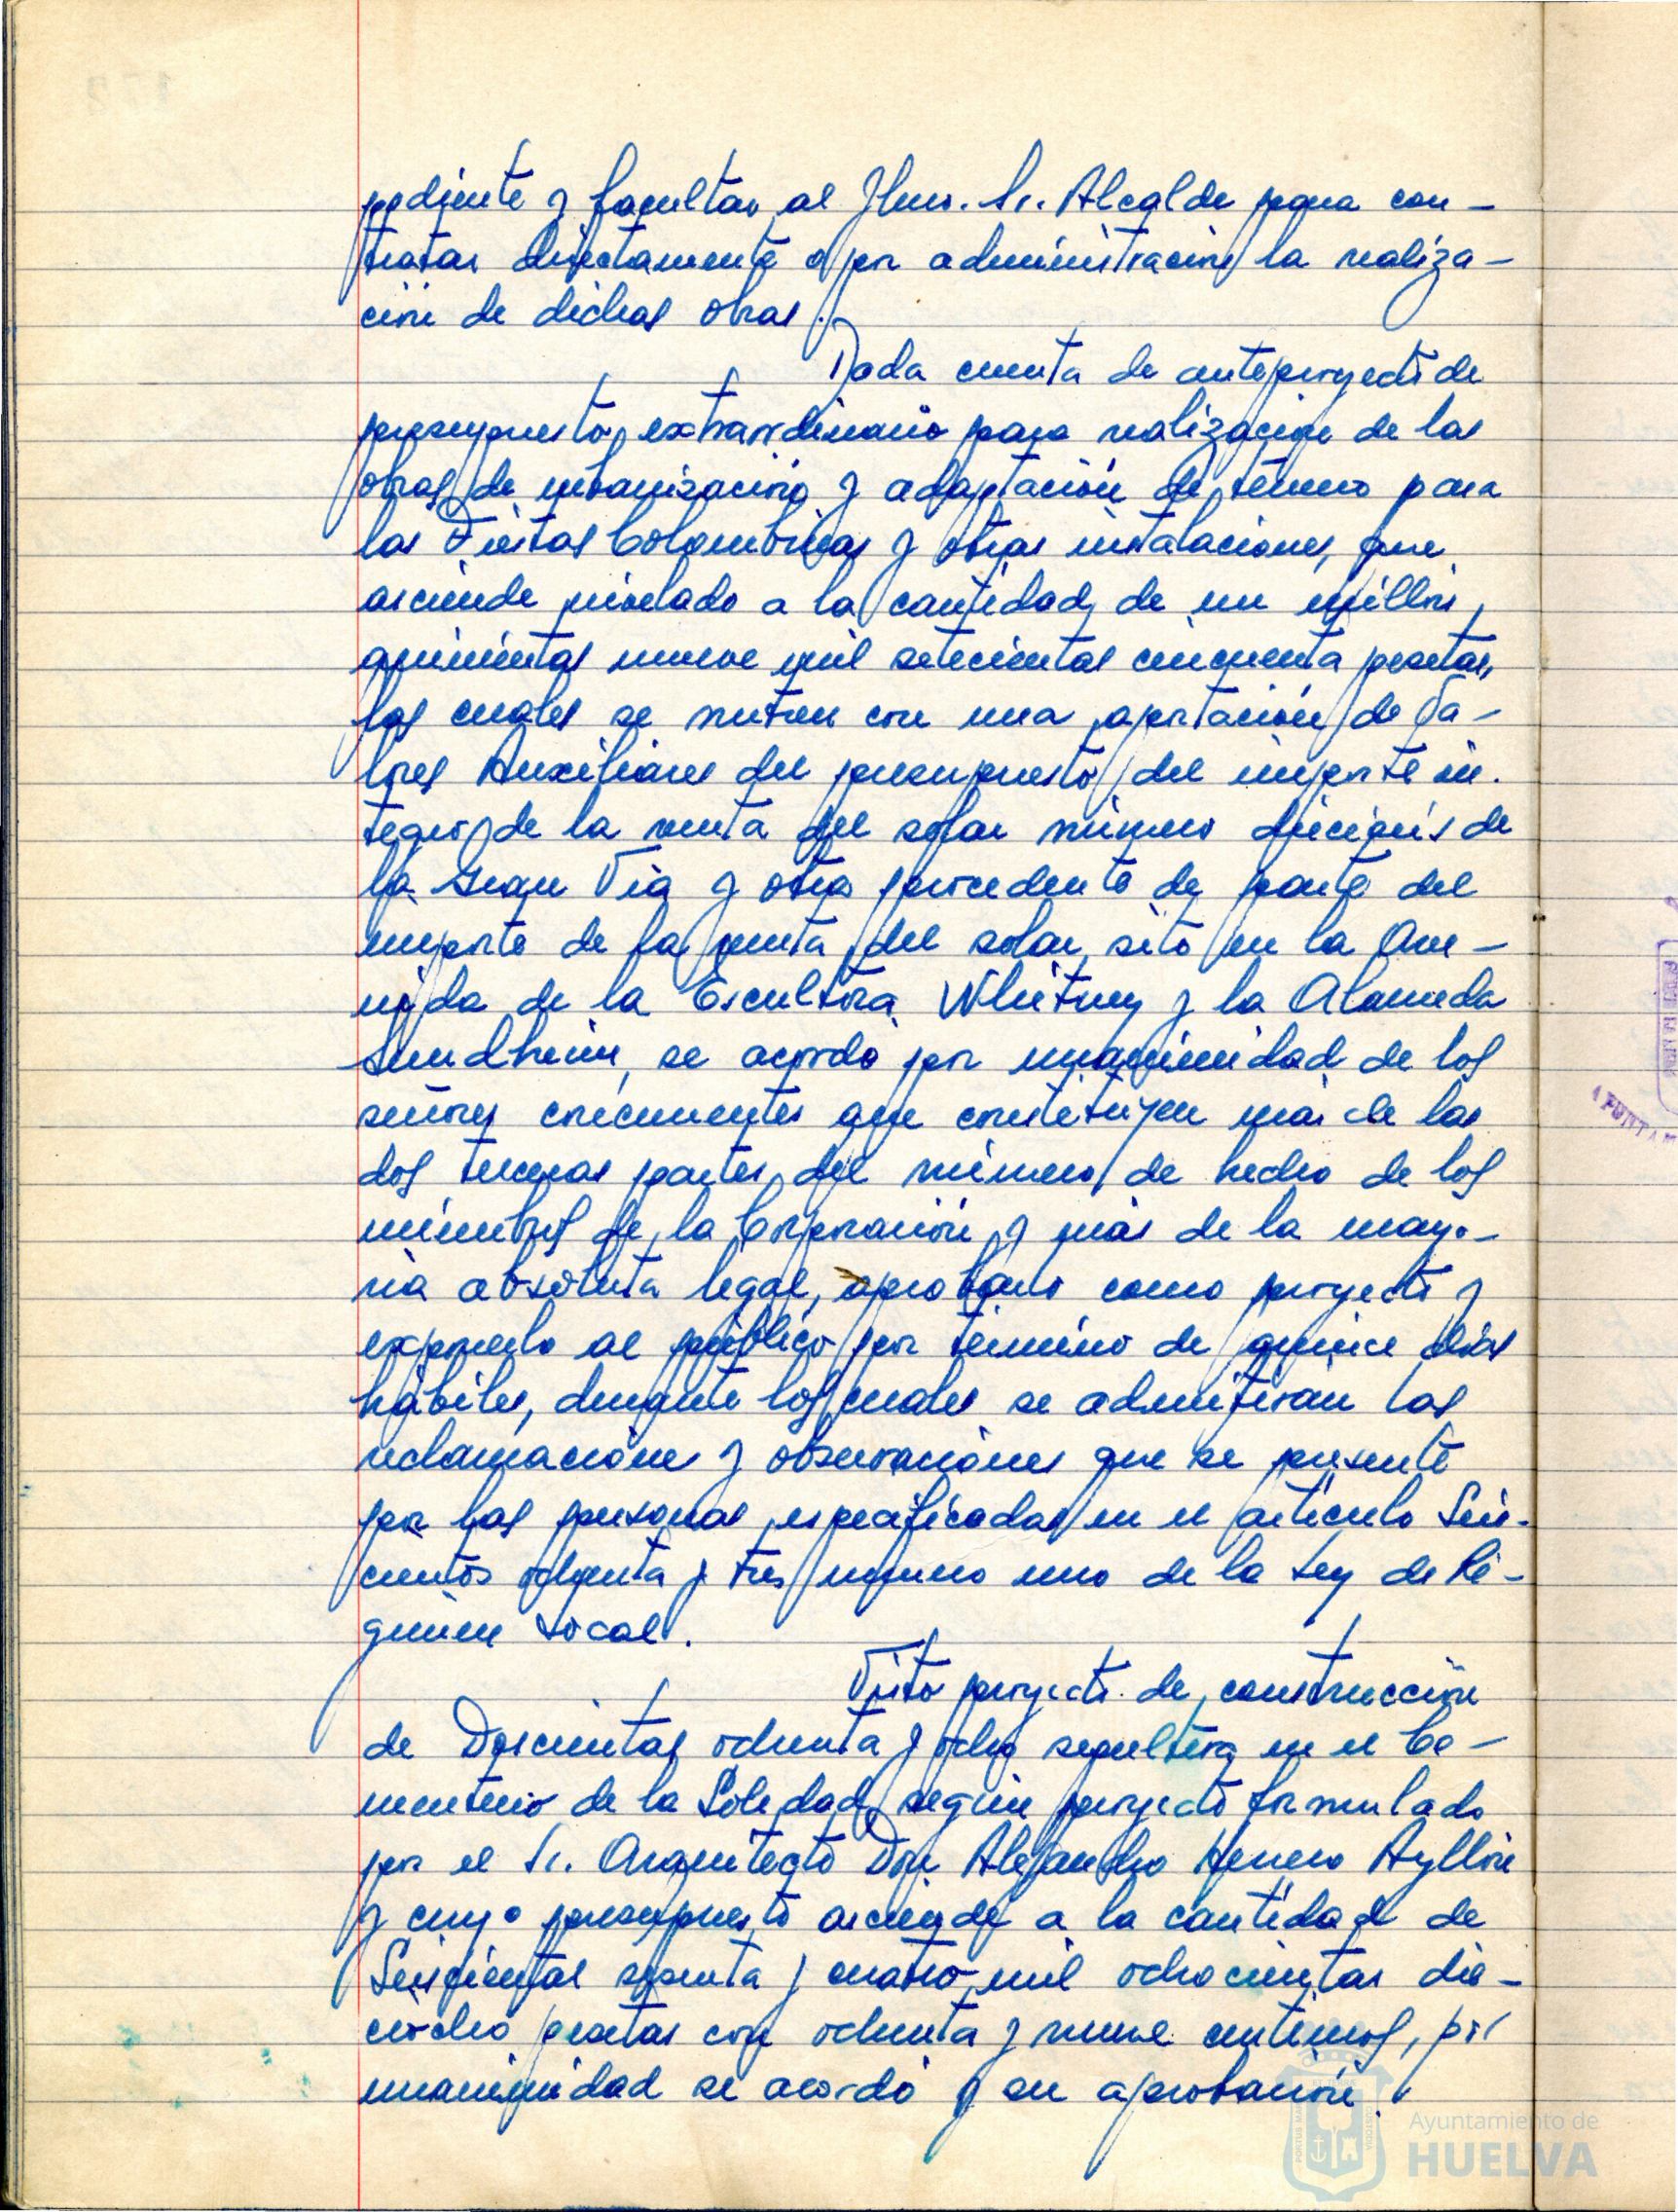 pediente y facultar al Ilmo. Sr. Alcalde para con-
tratar directamente o por administración la realiza-
ción de dichas obras.
Dada cuenta de anteproyecto de
presupuesto extraordinario para realización de las
obras de urbanización y adaptación de terreno para
las Fiestas Colombinas y otras instalaciones, que
asciende nivelado a la cantidad de un millón,
quinientas nueve mil setecientas cincuenta pesetas,
las cuales se nutren con una aportación de Va-
lores Auxiliares del presupuesto del importe ín-
tegro de la venta del solar número dieciseis de
la Gran Vía y otra procedente de parte del
importe de la venta del solar sito en la Ave-
nida de la Escultora Whitney y la Alameda
Sundheim, se acordó por unanimidad de los
señores concurrentes que constituyen más de las
dos terceras partes del número de hecho de los
miembros de la Corporación y más de la mayo-
ría absoluta legal, aprobarlo como proyecto y
exponerlo al público por término de quince días
hábiles, durante los cuales se admitirán las
reclamaciones y observaciones que se presente
por las personas especificadas en el artículo Seis-
cientos ochenta y tres número uno de la Ley de Ré-
gimen Local.
Visto proyecto de construcción
de Doscientas ochenta y ocho sepultura en el Ce-
menterio de la Soledad, según proyecto formulado
por el Sr. Arquitecto Don Alejandro Herrero Ayllón
y cuyo presupuesto asciende a la cantidad de
Seiscientas sesenta y cuatro mil ochocientas die-
ciocho pesetas con ochenta y nueve céntimos, por
unanimidad se acordó y su aprobación.
Ayuntamiento de
HUELVA